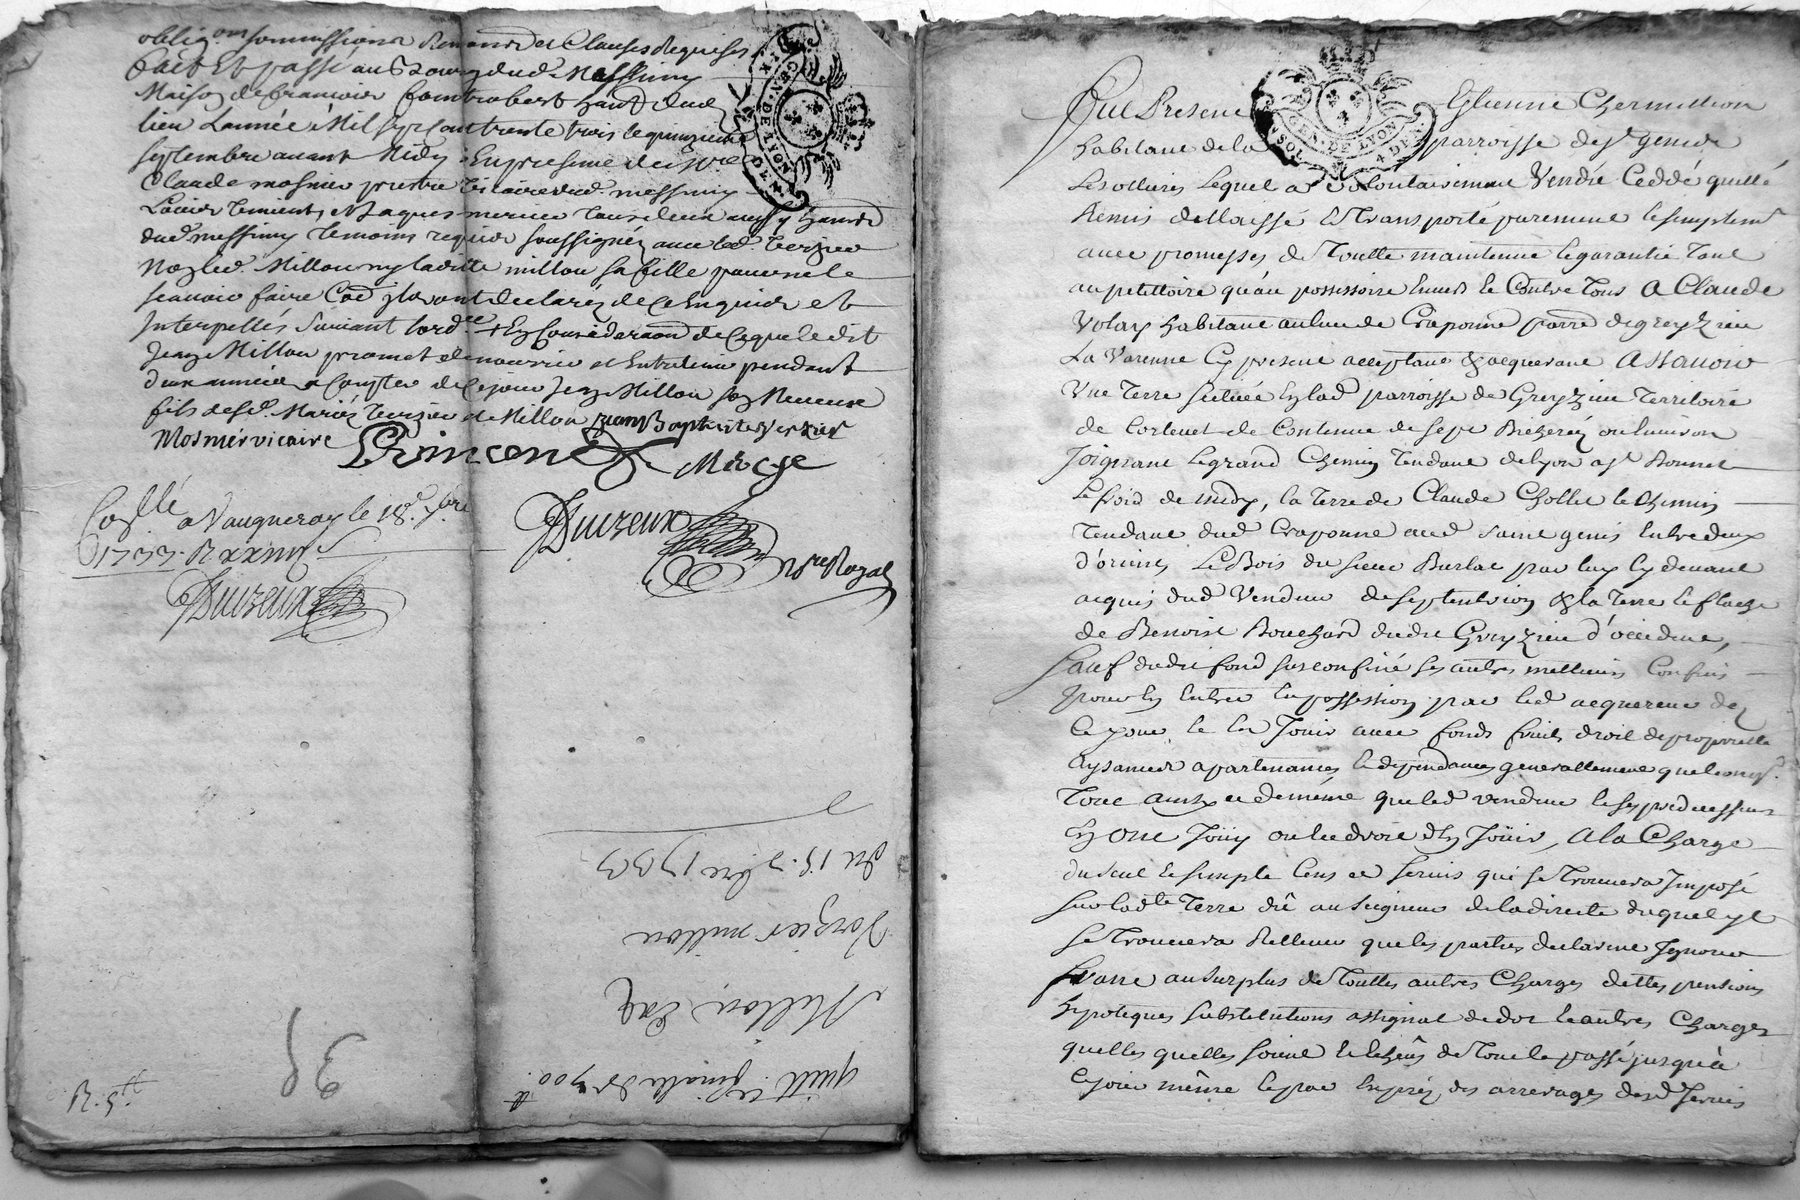 oblig.ons soumissions Renons et Clauses Requises
fait Et passé au Bourg dud. Messimy
Maison de françois
lieu L'année Mil sept Cent trente trois le quinzieme
septembre avant Midy En presence de Mre
Claude mosnier prestre vicaire dud. messimy
et Jaques
dud. messimy temoins requis soussignéz avec led. Verzier
Non led. Millou ny laditte millou sa fille pour ne le
scavoir faire ont declaréz de ce Enquis et
Interpellés suivant l'ord.ce + En Consideraon de ce que le dit
Jean Millou promet de nourrir et Entretenir pendant
deux années a Compter de ce jour Jean Millou son Neveu
fils desd. Mariés Verzier et Millou jean Baptiste verzier
Mosnier vicaire Princene
Duizeux
Nre Royal
Coll.é a Vaugneray le 18.e 7bre
1733. R
Duizeux
du 15. 7bre 1733
Verzier millou
Millou
quitt. finalle de 300.tt
39
GEN. DE LYON
Par Presence Estienne Chermettion
habitant de la parroisse de St. genis
Les ollieres Lequel a volontairement Vendu Ceddé quitté
Remis dellaissé Et transporté purement et simplemt
avec promesses de Toutte maintenue et garantie Tant
au petittoire qu'au possessoire Envers et Contre Tous A Claude
Volay habitant au lieu de Craponne parre. de greyzieu
La Varenne Cy present acceptant & acquerant Assavoir
Une Terre scituée En lad. parroisse de Greyzieu Territoire
de Cortenet de Contenue de sept Bicherées ou Environ
Joignant Le grand Chemin Tendant de lyon a St. Bonnet
Le froid de midy, la Terre de Claude Chollet le Chemin
Tendant dud. Craponne aud. saint genis Entredeux
d'orient, Le Bois du sieur Burlat par luy Cy devant
acquis dud. Vendeur de septentrion & la Terre
de Benoist Bouchard dudit Greyzieu d'occident,
sauf dudit fond susconfiné ses autres meilleurs Confins
pour En Entrer En possession par led. acquereur dez
Ce jour et En Jouir avec fonds fruits droit de proprietté
aysances apartenances et dependances generallement quelconqs.
Tout ainsy et de meme que led. vendeur et ses predecesseurs
En ont Joüy ou eu droit d'En Joüir, A la Charge
du seul et simple Cens et servis qui se trouvera Imposé
sur lad.te Terre dû au seigneur de la directe duquel yl
se Trouvera Relever que les parties de la rente Ignorer
franc au surplus de Touttes autres Charges dettes pensions
hypoteques substitutions assignat de dot et autres Charges
quelles quelles soient et Echûs de Tout le passé jusqu'à
ce jour même et par Exprés des arrerages desd. servis